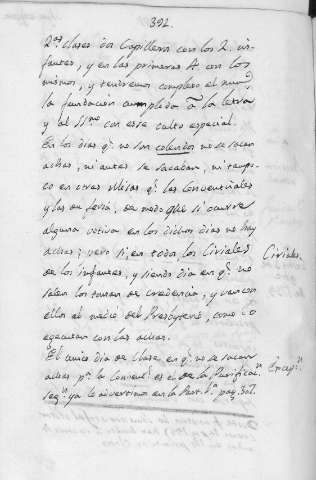 392.
2.as clases dos Capilleros con los 2. in-
fantes, y en las primeras 4. con los
mismos, y tendremos completo el num.o
la fundacion cumplida a la letra
y al SS.mo con esse culto especial.
En los dias q.e no son colendos no se sacan
achas, ni antes se sacaban, ni tampo-
co en otras Missas q.e las Conventuales
y las de feria, de modo que si ocurre
alguna votiva en los dichos dias no hay
achas; pero si en todos los Ciriales
de los infantes, y siendo dia en q.e no
salen los toman de credencia, y van con
ellos al medio del Presbyterio, como lo
egecutan con las achas.
El unico dia de Clase en q.e no se sacan
achas p.a la Convent.l es el de la Purificac.n
seg.n ya lo advertimos en la Part. 1.a pag. 367.
Ciriales.
Excepc.n